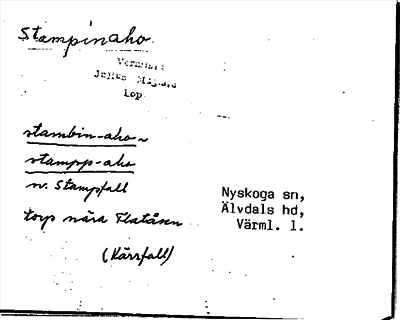 Stampinaho
Värml.
Julius Mägiste
kop.
stambin-aho ~
stampp-aho
sv. Stampfall
torp nära Flatåsen
(Kärrfall)
Nyskoga sn,
Älvdals hd,
Värml. l.